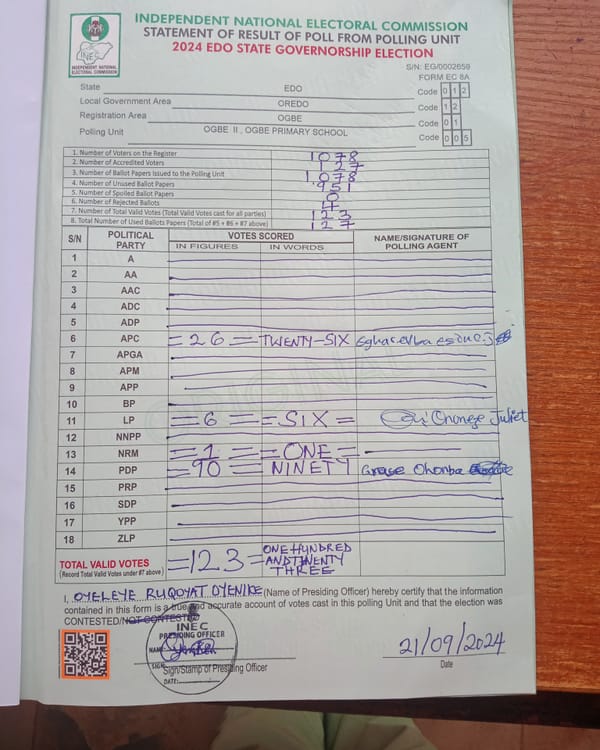 INDEPENDENT NATIONAL ELECTORAL COMMISSION
STATEMENT OF RESULT OF POLL FROM POLLING UNIT
2024 EDO STATE GOVERNORSHIP ELECTION
INEC
INDEPENDENT NATIONAL ELECTORAL COMMISSION
S/N: EG/0002659
FORM EC 8A
State EDO Code 0 1 2
Local Government Area OREDO Code 1 2
Registration Area OGBE Code 0 1
Polling Unit OGBE II , OGBE PRIMARY SCHOOL Code 0 0 5
1. Number of Voters on the Register 1078
2. Number of Accredited Voters 127
3. Number of Ballot Papers Issued to the Polling Unit 1078
4. Number of Unused Ballot Papers 951
5. Number of Spoiled Ballot Papers 0
6. Number of Rejected Ballots 4
7. Number of Total Valid Votes (Total Valid Votes cast for all parties) 123
8. Total Number of Used Ballots Papers (Total of #5 + #6 + #7 above) 127
S/N POLITICAL PARTY VOTES SCORED NAME/SIGNATURE OF POLLING AGENT
IN FIGURES IN WORDS
1 A
2 AA
3 AAC
4 ADC
5 ADP
6 APC =26= TWENTY-SIX
7 APGA
8 APM
9 APP
10 BP
11 LP =6= =SIX= Juliet
12 NNPP
13 NRM =1= =ONE=
14 PDP =90= NINETY Ohonba
15 PRP
16 SDP
17 YPP
18 ZLP
TOTAL VALID VOTES =123= ONE HUNDRED AND TWENTY THREE
(Record Total Valid Votes under #7 above)
I, OYELEYE RUQOYAT OYENIKE (Name of Presiding Officer) hereby certify that the information
contained in this form is a true and accurate account of votes cast in this polling Unit and that the election was
CONTESTED/NOT CONTESTED
INEC
PRESIDING OFFICER
NAME:
SIGN:
DATE:
Sign/Stamp of Presiding Officer
21/09/2024
Date